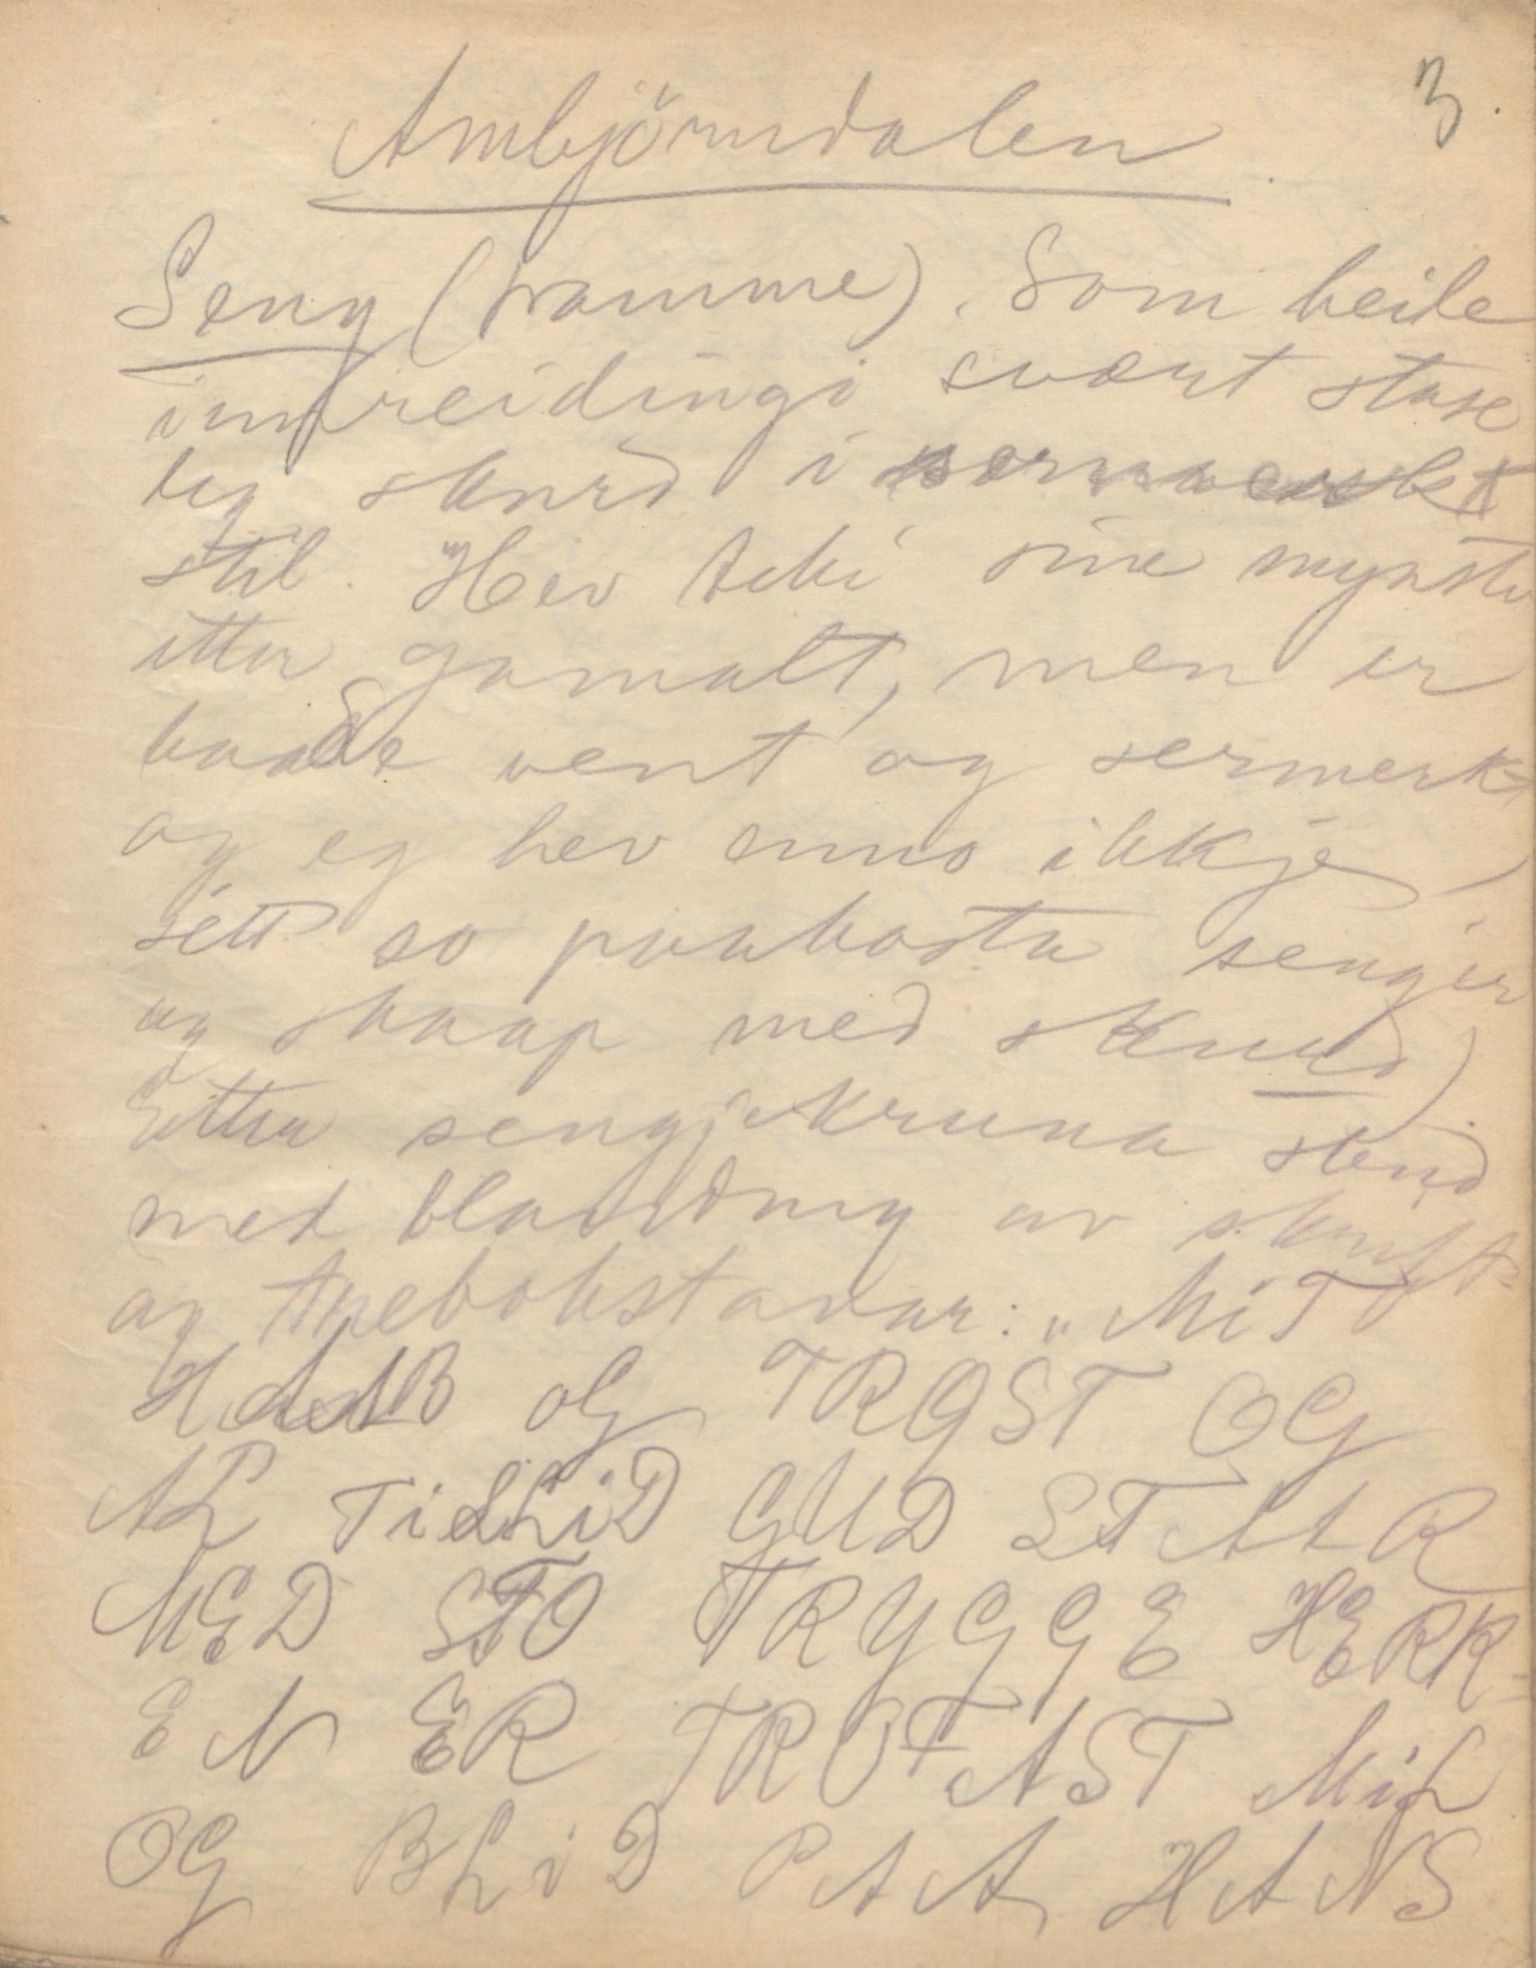 3.
Ambjörndalen
Seng (ramme). Som heile
innreidingi svært stase
leg skurd i
stil. Hev teki sine mynster
etter gamalt, men er
baade vent og sermerkt,
og eg hev enno ikkje
sétt so paakosta sengjer
og skaap med skurd)
Etter sengjekruna stend
med blanding av skrift-
og bokstavar: „MiT
HAAB OG TRØST OG
AL TiLLiD GUD STAAR
MED STO TRYGGE HERR-
EN ER TROFAST MiL
OG BLiD PAA HANS